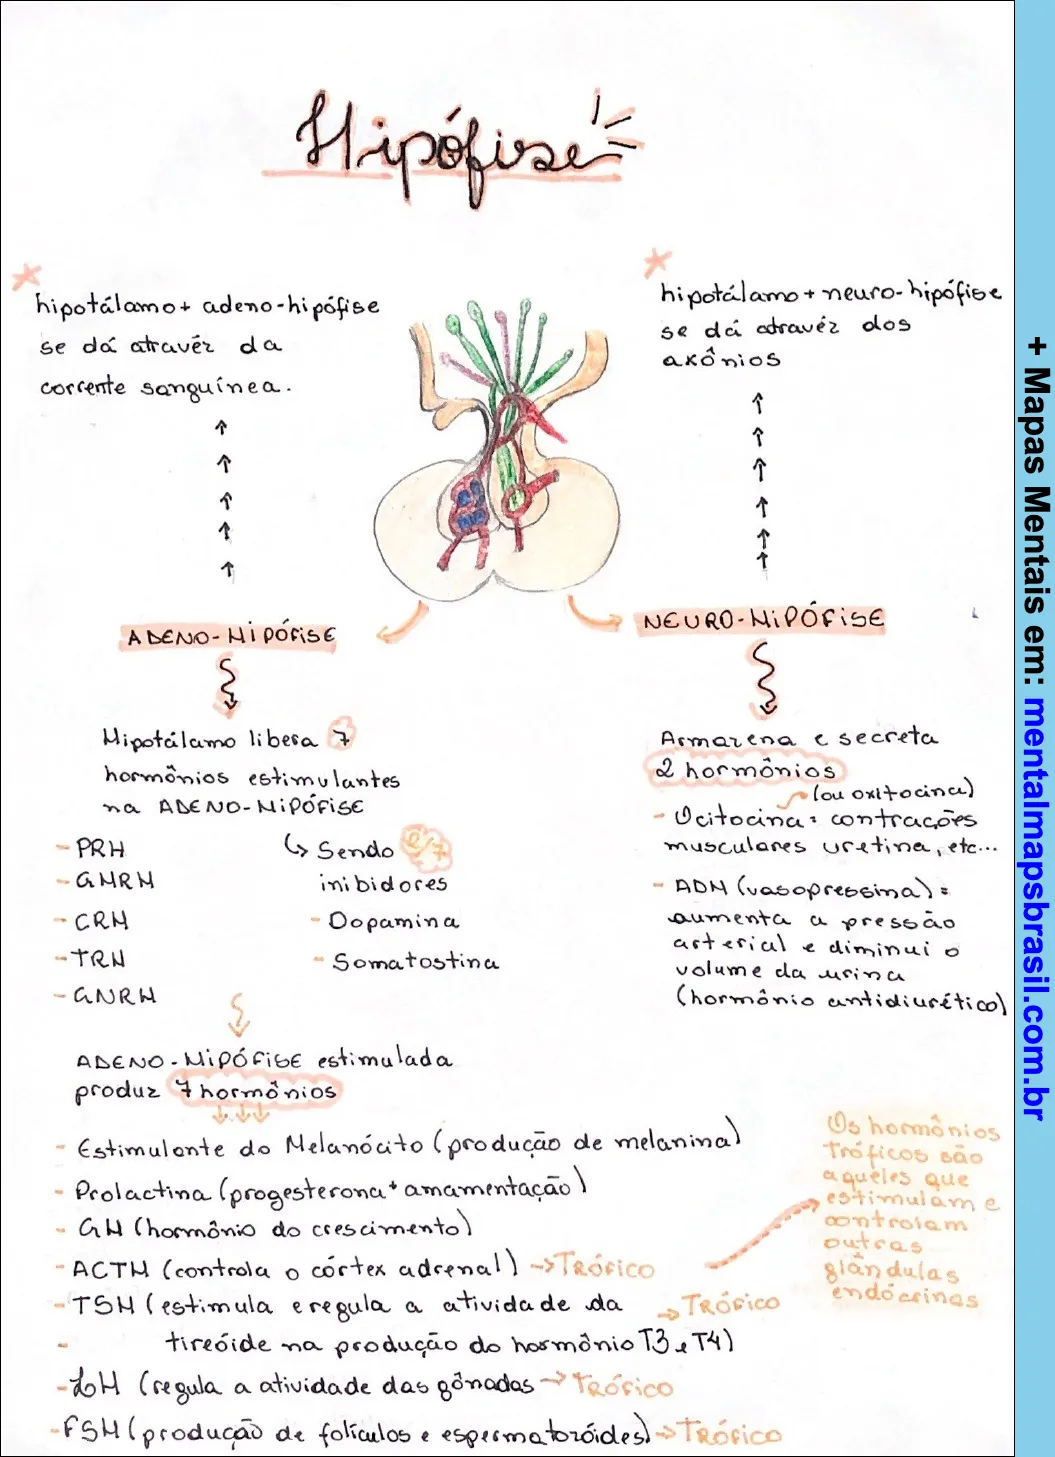 Hipófise
hipotálamo + adeno-hipófise
se dá atravéz da
corrente sanguínea.
hipotálamo + neuro-hipófise
se dá atravéz dos
axônios
ADENO-HIPÓFISE
NEURO-HIPÓFISE
Hipotálamo libera 7
hormônios estimulantes
na ADENO-HIPÓFISE
- PRH
- GHRH
- CRH
- TRH
- GNRH
↳ Sendo 2/7
inibidores
- Dopamina
- Somatostina
Armazena e secreta
2 hormônios
(ou oxitocina)
- Ocitocina: contrações
musculares uretina, etc...
- ADH (vasopressina) =
aumenta a pressão
arterial e diminui o
volume da urina
(hormônio antidiurético)
ADENO-HIPÓFISE estimulada
produz 7 hormônios
- Estimulante do Melanócito (produção de melanina)
- Prolactina (progesterona + amamentação)
- GH (hormônio do crescimento)
- ACTH (controla o córtex adrenal) → TRÓFICO
- TSH (estimula e regula a atividade da → TRÓFICO
- tireóide na produção do hormônio T3 e T4)
- LH (regula a atividade das gônadas → TRÓFICO
- FSH (produção de folículos e espermatozóides) → TRÓFICO
Os hormônios
tróficos são
aqueles que
estimulam e
controlam
outras
glândulas
endócrinas
+ Mapas Mentais em: mentalmapsbrasil.com.br